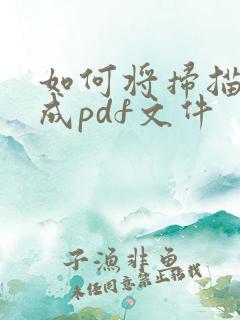 如何将扫描
成pdf文件
子渔非鱼
未经同意禁止搬载